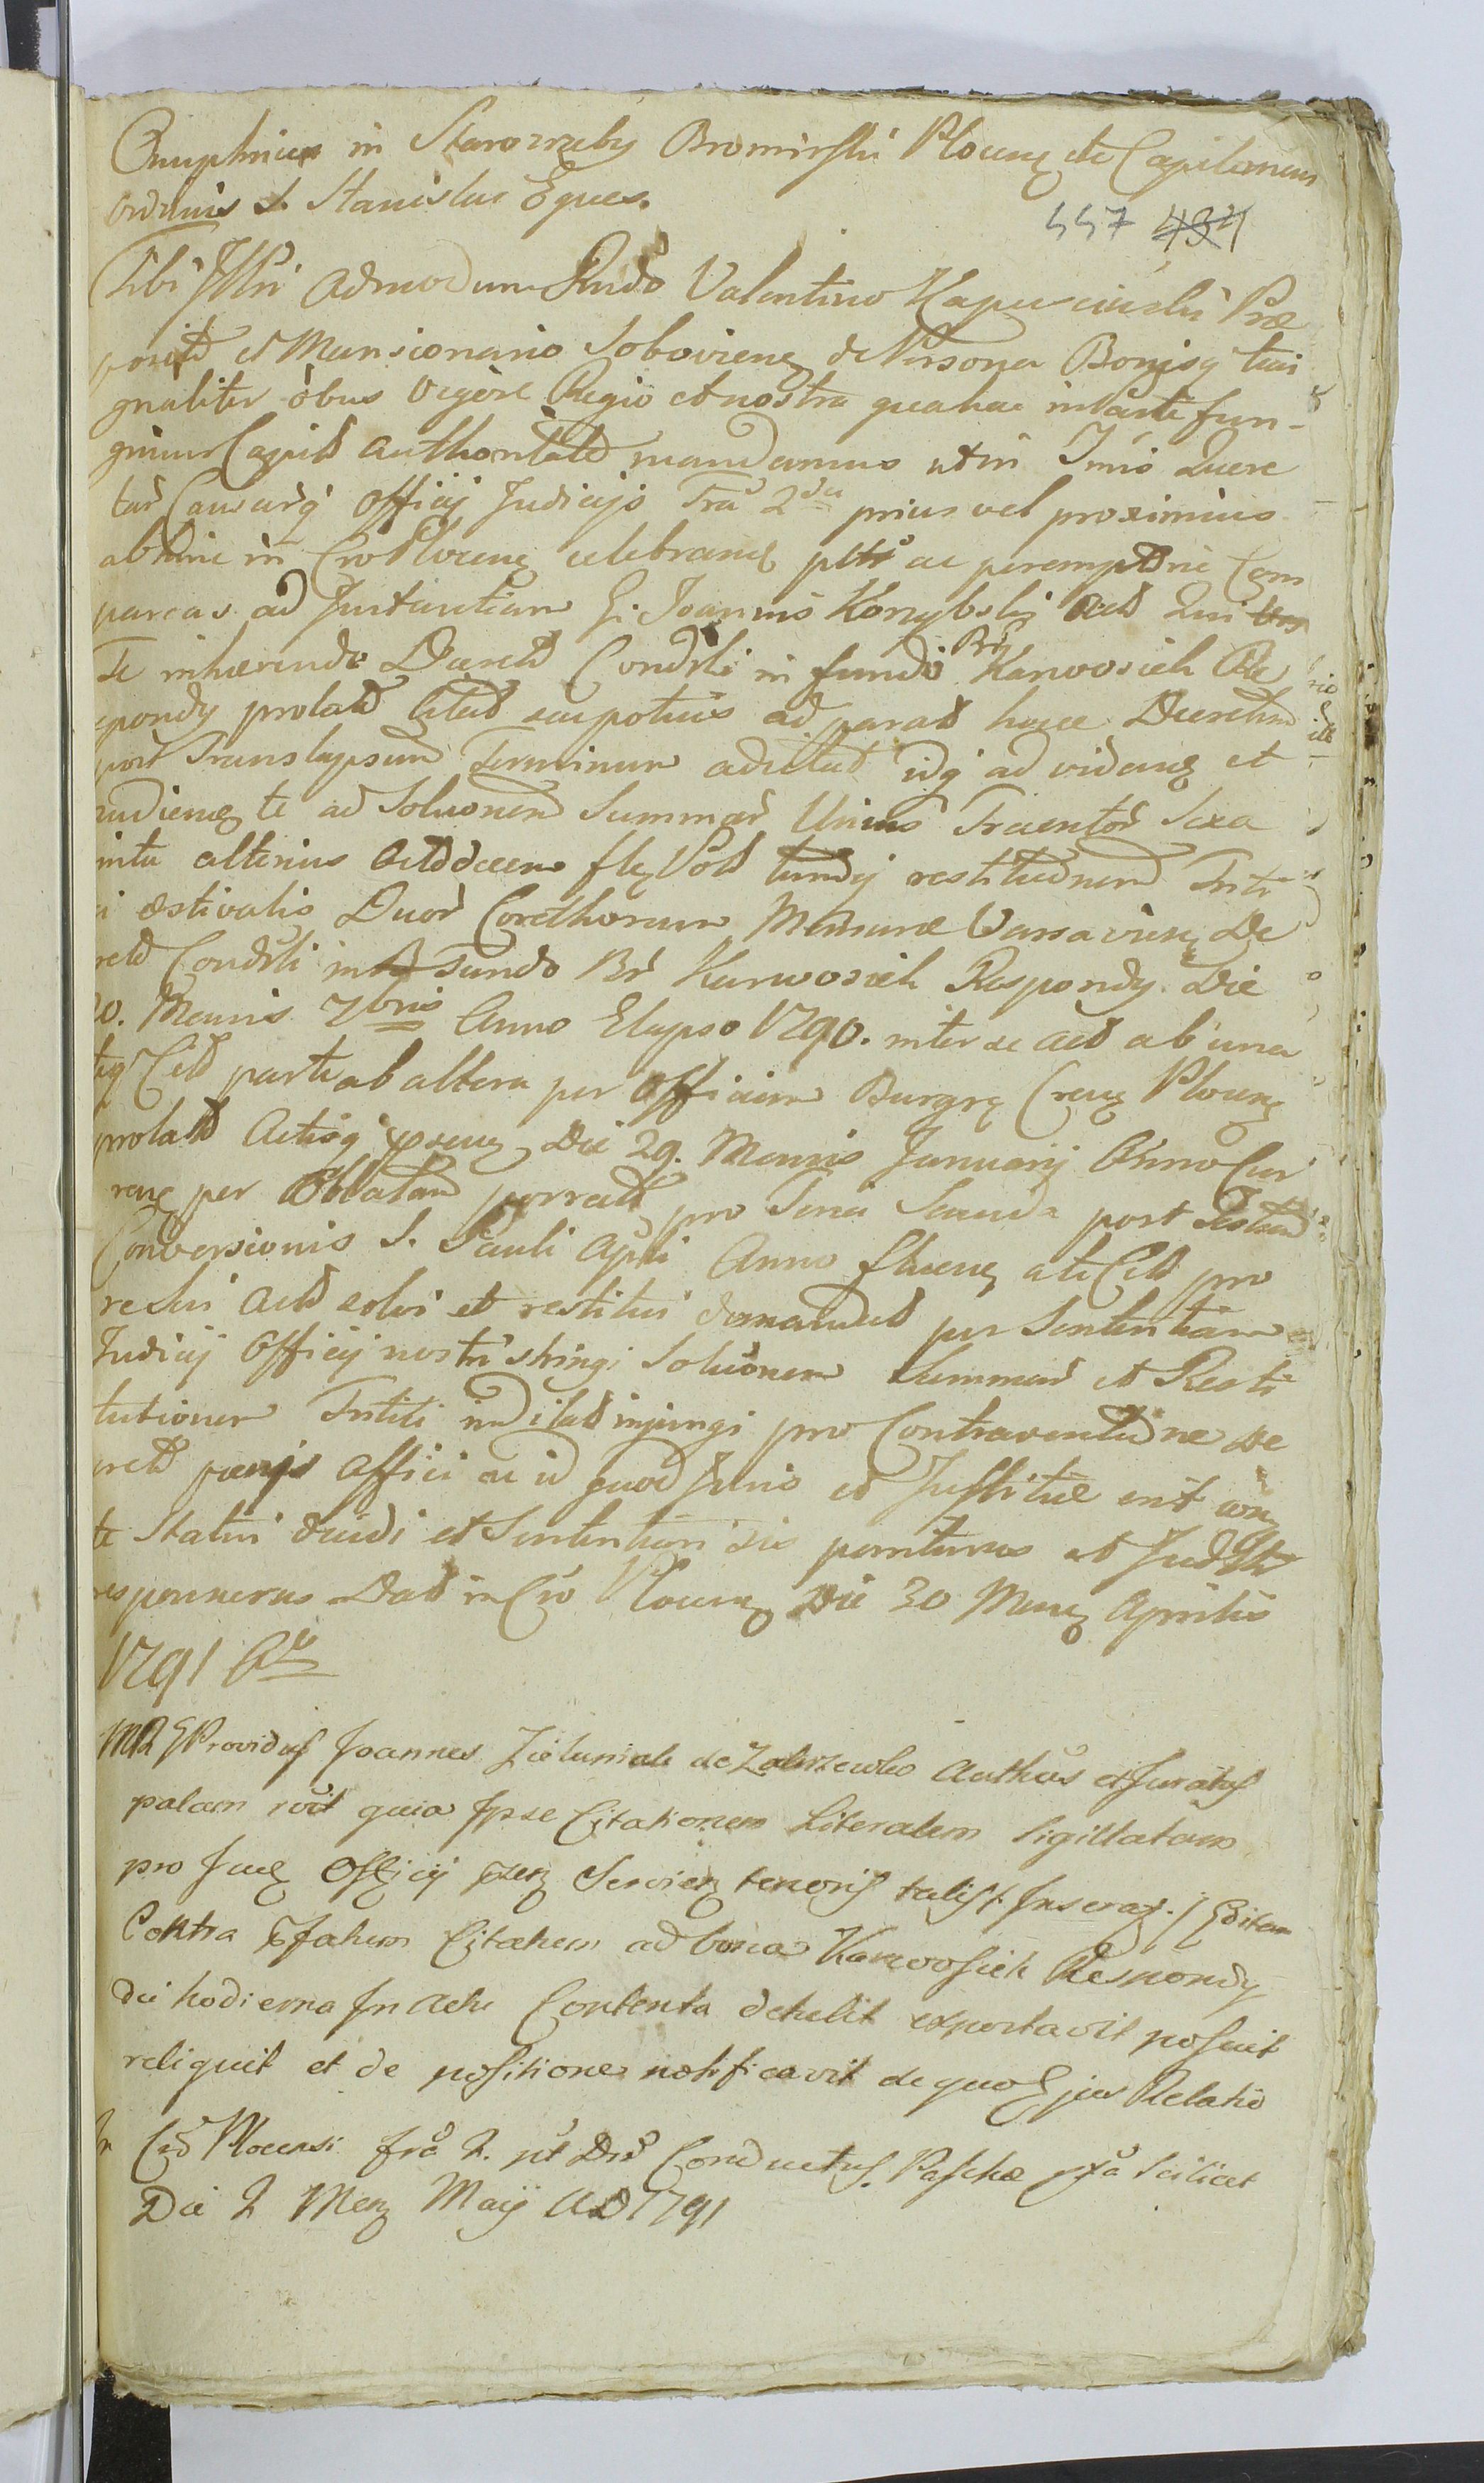 Onuphrius in Starozreby Bromirski Plocens etc Capitaneus
ordinis S. Stanislai Eques.
447 434
Tibi Illri admodum Rndo Valentino Kapuscinski Præ
posito et Mansionario Soboviens de Persona Bonisq tuis
gnaliter obus vigore Regio et nostra qua hac in parte fun-
gimur Capit authoritate mandamus ut in Juris Quere
lar Causarq Officij Judicijs fra 2da prius vel proximius
abhinc in Cro Plocens celebrand pltr ac peremptorie Com
pareas ad Instantiam G. Joannis Korzybski Act Qui
Te inhærendo Decreto Condsli in fundo Br Karwosiek Re
spondy prolato citat seu potius ad parad huice Decretum
post Translapsum Terminum adcitat idq ad videng et
audiend te ad Solutionem Summar Unius Trecentor Sexa
inta alterius Octodecem fl Pol tundij restitutionem Triti
ci æstivalis Duor Corethorum Mensuræ Varsaviens De
creto Condsli in fundo Br Karwosiek Respondy Die
20. Mensis 7bris Anno Elapso 1790. inter se act ab una
teq Cit parte ab altera per Officium Burgr Crens Plocens
prolato Actisq prsens Die 29. Mensis Januarij Anno Cur
rens per Oblatam porrect pro Feria Secunda post Festum
Conversionis S. Pauli Apli Anno fluens a te Cit pro
re sui act solvi et restitui demandat per Sententiam
Judicij Officij nostri stringi Solutionem Summar et Resti
tutionem Tritici indilat injungi pro Contraventione De
creto poenis affici ac id quod Juris et Justitiæ erit con
te Statui decidi et Sententiari sis pariturus et Judlr
responsurus Dat in Cro Plocens Die 30 Mens Aprilis
1791 Ao
MR Providus Joannes Zieluniak de Zakrzewko authus et Juratus
palam rcvit quia Ipse Citationem Literalem Sigillatam
pro Jud Officij prens Serviens tenoris talis /: Inserat :/ Editam
Contra Pfatum Citatum ad bona Karwosiek Respondy
die hodierna In actu Contenta detulit exportavit posuit
reliquit et de positione notificavit de quo Ejus Relatio
In Cro Plocensi fra 2. pt Dnc Conductus Paschæ pxa scilicet
Die 2 Mens Maij AD 1791